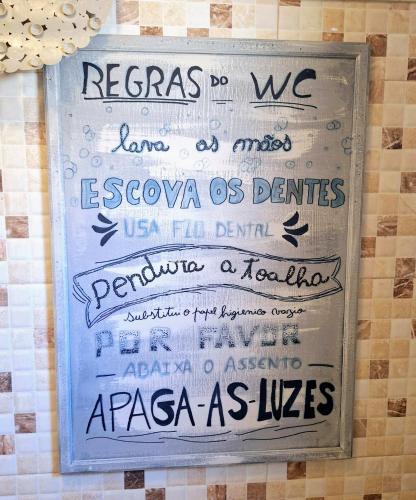 REGRAS DO WC
lava as mãos
ESCOVA OS DENTES
USA FIO DENTAL
Pendura a Toalha
substitui o papel higienico vazio
POR FAVOR
ABAIXA O ASSENTO
APAGA-AS-LUZES